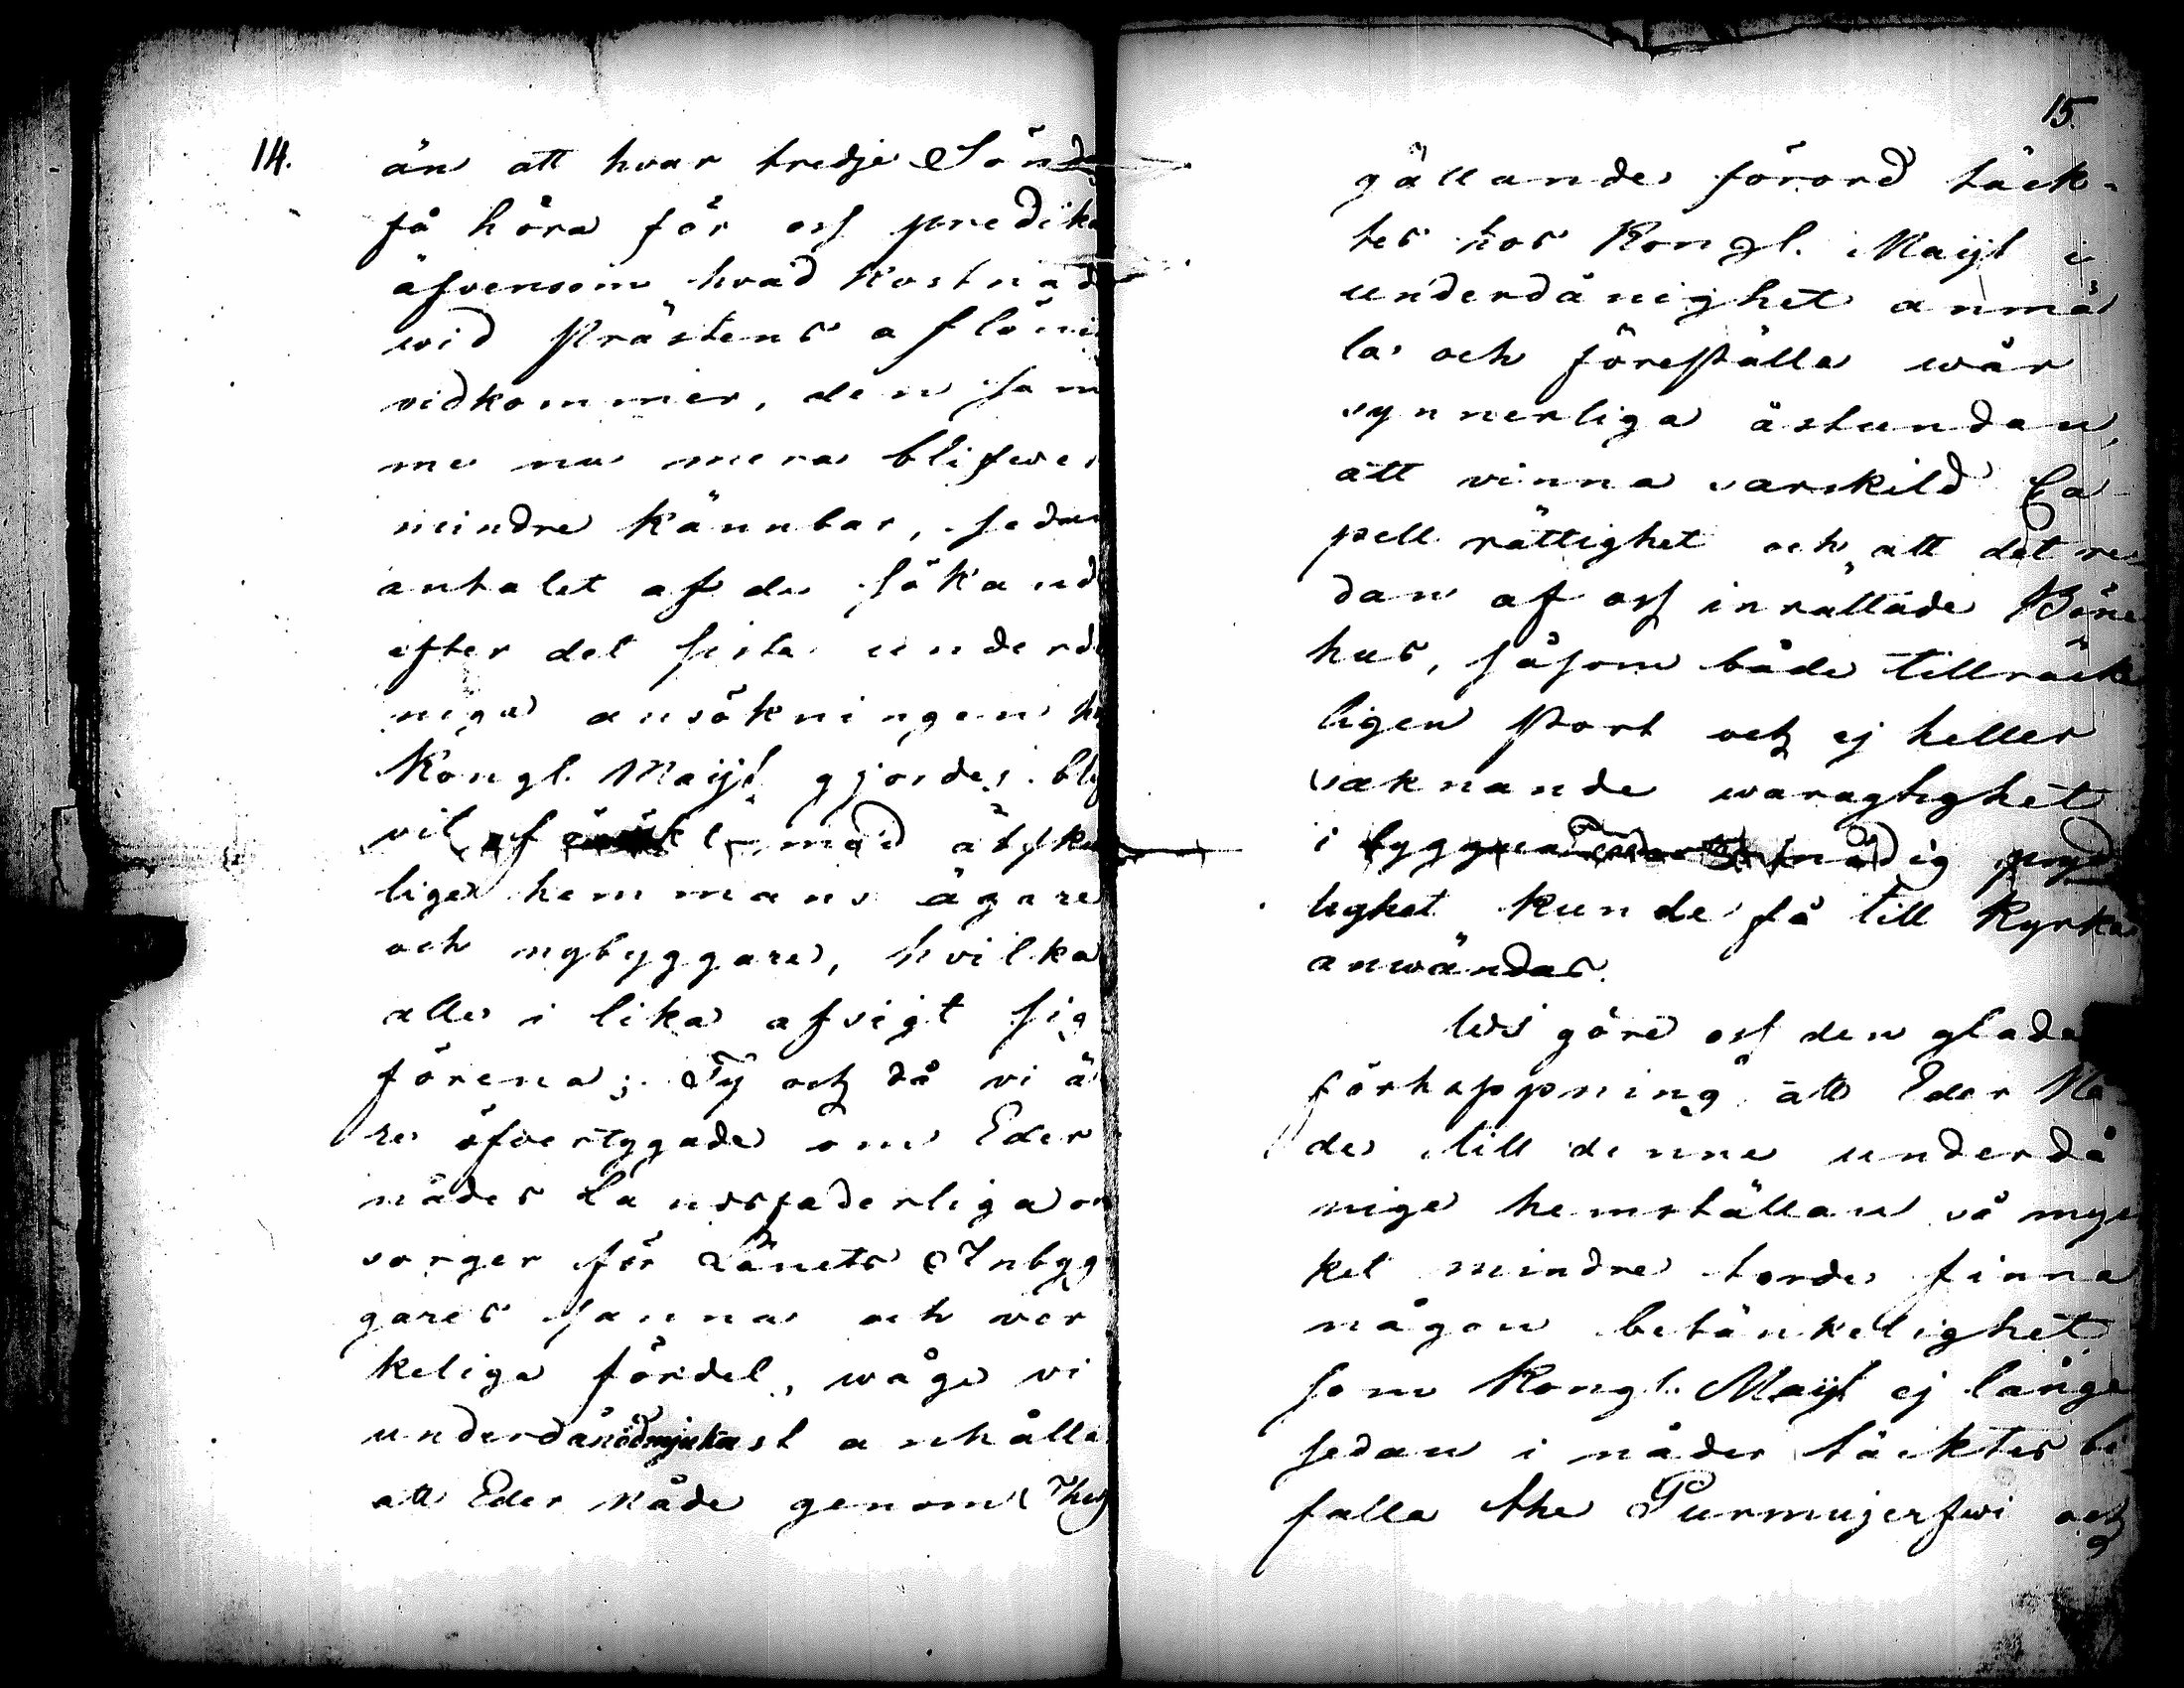 14.
än att hvar tredje Sönd
få höra för oss predika
äfvensom hvad kostnad
wid Prästens aflöni
vidkommer, den sam
me nu mera blifwe
mindre kännbar, sedan
antalet af de sökand
efter det sista underd
niga ansökningen h
Kongl. Maijt gjordes. bli
vit med åtski
lige hemmans ägare
och nybyggare, hvilka
alle i lika afsigt sig
förena; Ty och då vi ä
re öfvertygade om Eder
nådes Landsfaderliga om
sorger för Länets Inbyg
gares sanna och ver
keliga fördel, wåge vi
ödmjukast anhålla
att Eder Nåde genom Thes
15.
gällande förord täck-
tes hos Kongl. Maijt i
underdånighet anmä
la och föreställa wår
synnerliga åstundan,
att vinna särskild Ca-
pell rättighet och att det re
dan af oss inrättade Böne
hus, såsom både tillräck
ligen stort och ej heller
saknande waraghtighet
i nådig
lighet kunde få till Kyrka
anwändas.
Wi göre oss den glada
förhoppning att Eder Nå
de till denne underdå
nige hemställan så myc
ket mindre torde finna
någon betänkelighet
som Kongl. Maijt ej länge
sedan i nåder täcktes bi
falla the Purmujerfwi och